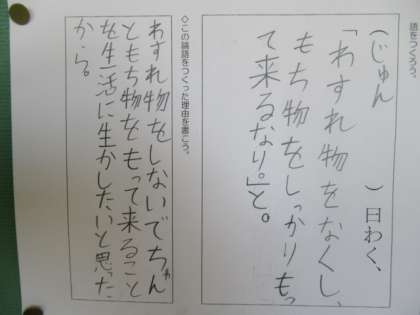 語をつくろう。
(じゅん)日わく、
「わすれ物をなくし、
もち物をしっかりもっ
て来るなり。」と。
◇この論語をつくった理由を書こう。
わすれ物をしないでちゃん
ともち物をもって来ること
を生活に生かしたいと思った
から。